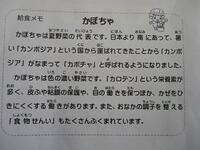 給食メモ
かぼちゃ
かぼちゃは夏野菜の代表です。日本より南にあって、暑
い「カンボジア」という国から運ばれてきたことから「カンボジ
ア」がなまって「カボチャ」と呼ばれるようになりました。
かぼちゃは色の濃い野菜です。「カロテン」という栄養素が
多く、皮ふや粘膜の保護や、目の働きを保つほか、かぜをひ
きにくくする働きがあります。また、おなかの調子を整える
「食物せんい」もたくさんふくまれています。